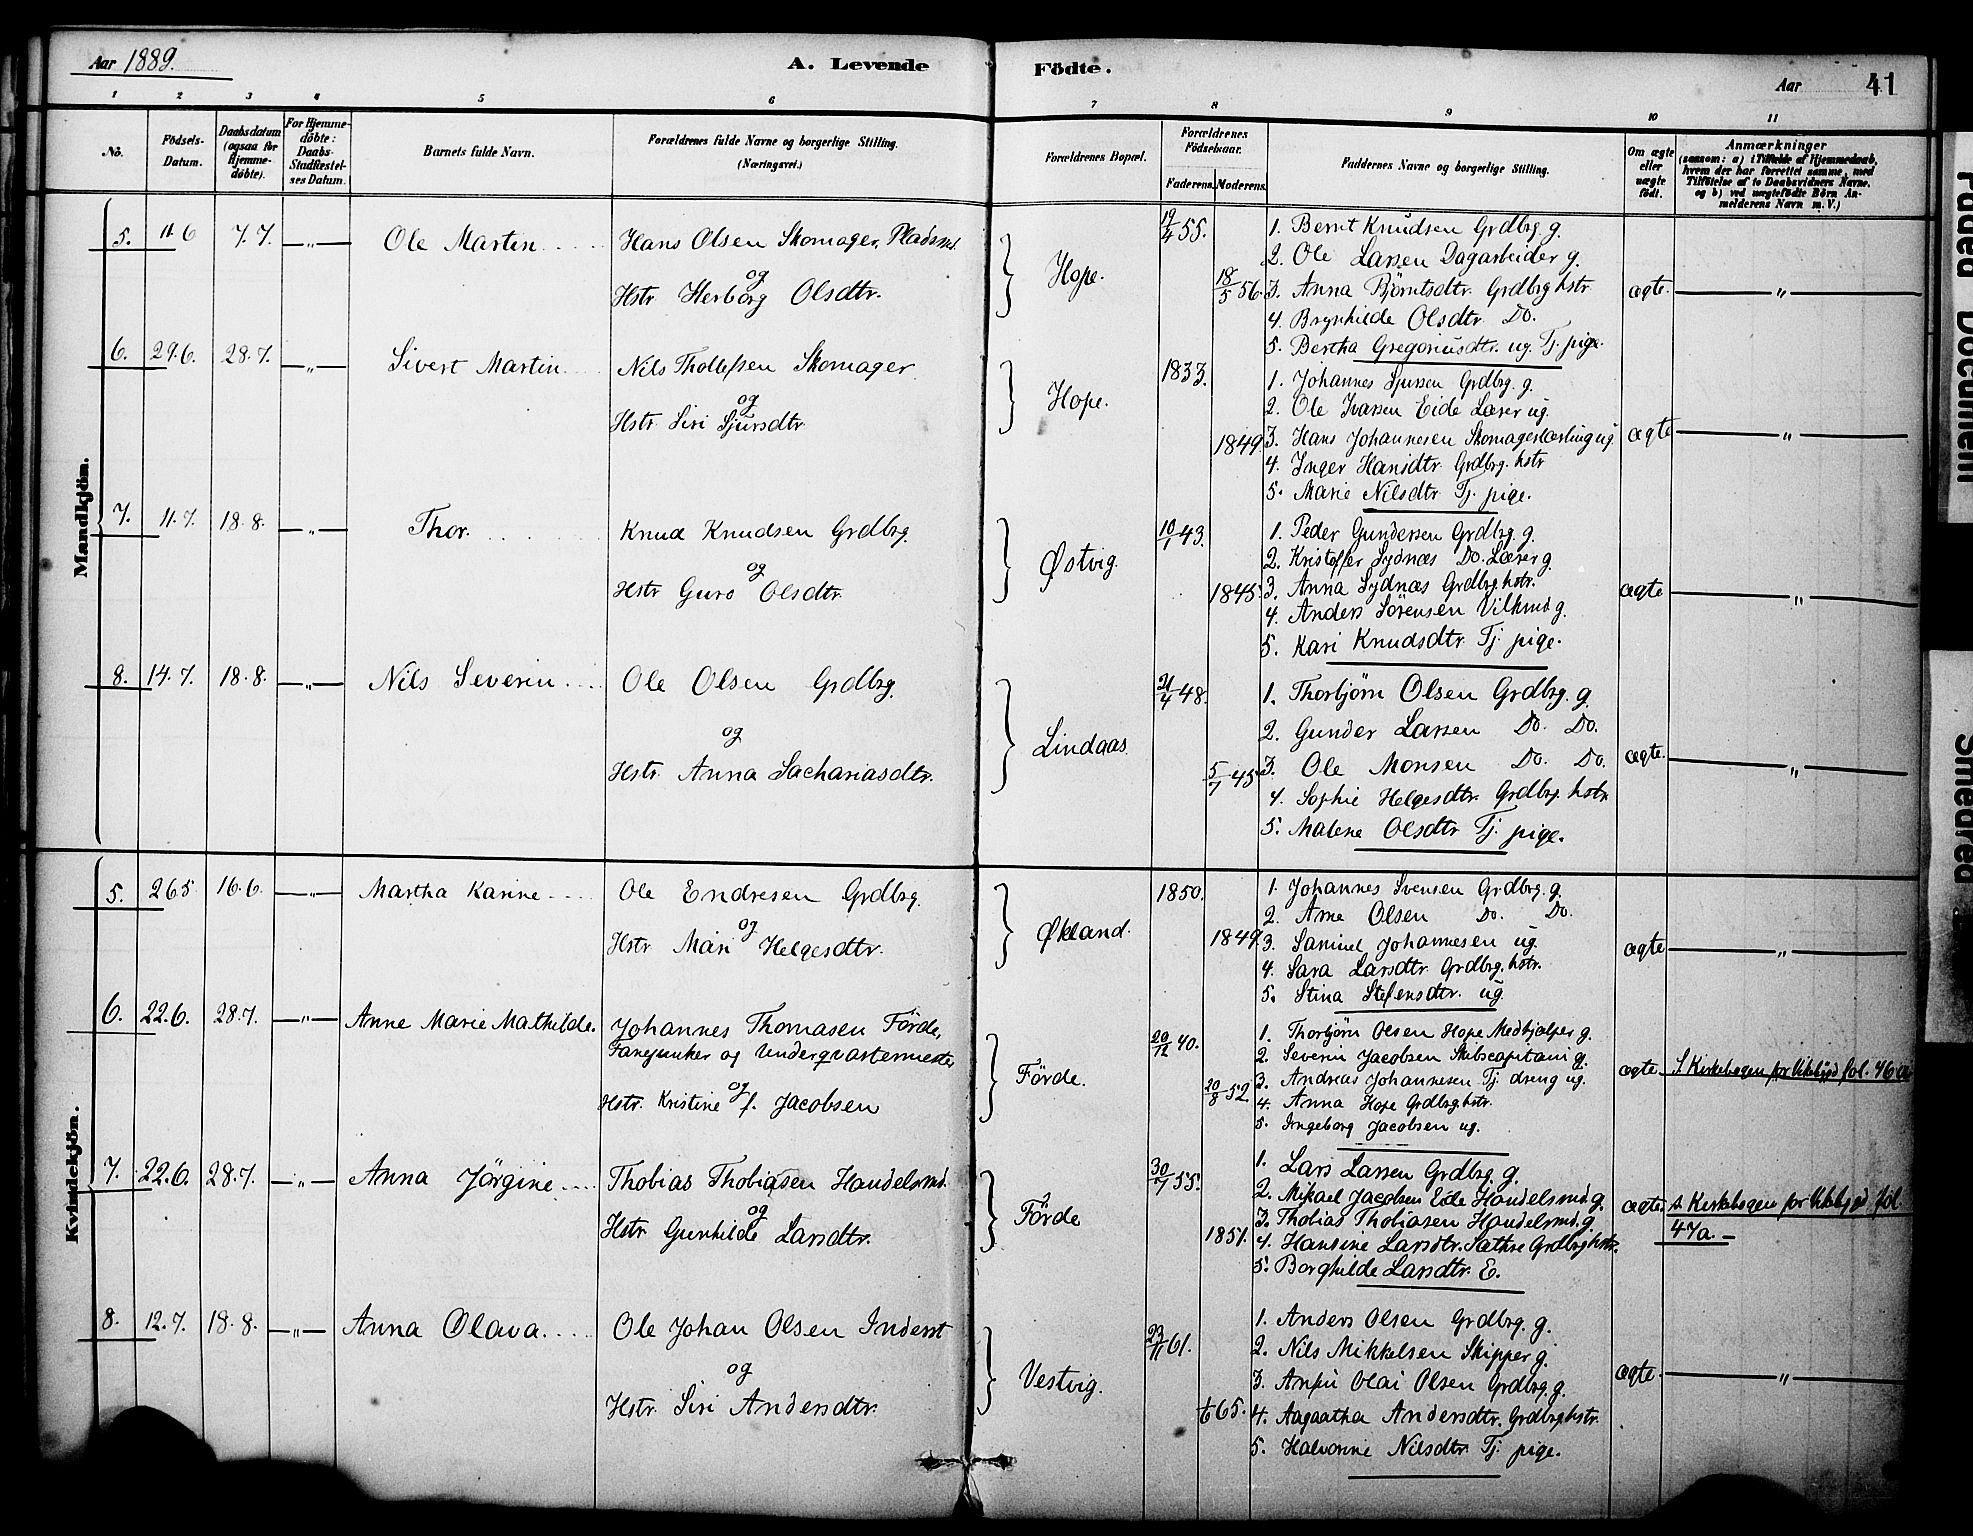 Aar 1889.
A. Levende Födte.
Aar 41
1 2 3 4 5 6 7 8 9 10 11
No.
Födsels-Datum.
Daabsdatum (ogsaa for Hjemme-döbte).
For Hjemme-döbte: Daabs-Stadfæstel-ses Datum.
Barnets fulde Navn.
Forældrenes fulde Navne og borgerlige Stilling. (Næringsvei.)
Forældrenes Bopæl.
Forældrenes Födselsaar.
Faderens. Moderens.
Faddernes Navne og borgerlige Stilling.
Om ægte eller uægte födt.
Anmærkninger
(saasom: a) i Tilfælde af Hjemmedaab, hvem der har forrettet samme, med Tilföielse af to Daabsvidners Navne, og b) ved uægtefödte Börn An-melderens Navn m. V.)
Mandkjön.
5. 11.6 7.7. —„— Ole Martin Hans Olsen Skomager, Pladsmd.
og
Hstr Herborg Olsdtr.
Hope.
19/4 55.
18/5 56.
1. Bernt Knudsen Grdbrg. g.
2. Ole Larsen Dagarbeider g.
3. Anna Björntsdtr. Grdbrg hstr
4. Brynhilde Olsdtr Do.
5. Bertha Gregoriusdtr. ug. Tj. pige.
ægte. —„—
6. 29.6. 28.7. —„— Sivert Martin Nils Thollefsen Skomager
og
Hstr Siri Sjursdtr
Hope.
1833.
1849.
1. Johannes Sjursen Grdbrg. g.
2. Ole Ivarsen Eide Lærer ug.
3. Hans Johannesen Skomagerlærling ug
4. Inger Hansdtr. Grdbrg. hstr
5. Marie Nilsdtr Tj. pige.
ægte —„—
7. 11.7. 18.8. —„— Thor. Knud Knudsen Grdbrg.
og
Hstr Guro Olsdtr.
Østvig.
10/1 43.
1845.
1. Peder Gundersen Grdbrg. g.
2. Kristoffer Sydnæs Do. Lærer g.
3. Anna Sydnæs Grdbrg hstr.
4. Anders Sörensen g.
5. Kari Knudsdtr. Tj. pige.
ægte —„—
8. 14.7. 18.8. —„— Nils Severin Ole Olsen Grdbrg.
og
Hstr. Anna Sachariasdtr.
Lindaas.
21/4 48.
5/7 45
1. Thorbjörn Olsen Grdbrg. g.
2. Gunder Larsen Do. Do.
3. Ole Monsen Do. Do.
4. Sophie Helgesdtr. Grdbrg. hstr
5. Malene Olsdtr Tj. pige.
ægte. —„—
Kvindekjön.
5. 26.5 16.6. —„— Martha Karine Ole Endresen Grdbrg.
og
Hstr Mari Helgesdtr.
Økland.
1850.
1849.
1. Johannes Svensen Grdbrg. g.
2. Arne Olsen Do. Do.
3. Samuel Johannesen ug.
4. Sara Larsdtr Grdbrg. hstr.
5. Stina Stefensdtr. ug.
ægte —„—
6. 22.6. 28.7. —„— Anne Marie Mathilde. Johannes Thomasen Förde,
Fanejunker og Underqvartermester
og
Hstr. Kristine f. Jacobsen
Förde.
20/12 40.
20/8 52.
1. Thorbjörn Olsen Hope Medhjælper g.
2. Severin Jacobsen Skibscapitain g.
3. Andreas Johannesen Tj. dreng ug.
4. Anna Hope Grdbrg hstr.
5. Ingeborg Jacobsen ug.
ægte S. Kirkebogen for Vikebygd fol. 46 a
7. 22.6. 28.7. —„— Anna Jörgine Thobias Thobiasen Handelsmd.
og
Hstr Gunhilde Larsdtr.
Förde
30/7 55.
1851.
1. Lars Larsen Grdbrg. g.
2. Mikael Jacobsen Eide Handelsmd. g.
3. Thobias Thobiasen Handelsmd. g.
4. Hansine Larsdtr. Sæthre Grdbrg hstr.
5. Borghilde Larsdtr. E.
ægte. s. Kirkebogen for Vikebygd. fol.
47a. —
8. 12.7. 18.8. —„— Anna Olava. Ole Johan Olsen Inderst
og
Hstr. Siri Andersdtr.
Vestvig.
23/11 61.
65.
1. Anders Olsen Grdbrg. g.
2. Nils Mikkelsen Skipper g.
3. Olai Olsen Grdbrg. g.
4. Aagaatha Andersdtr. Grdbrg hstr.
5. Halvorine Nilsdtr Tj. pige.
ægte. —„—
Faded Document
Smeared